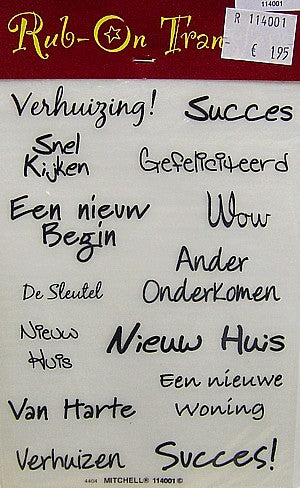 114001
R 114001
€ 1.95
Rub-On Tran
Verhuizing!
Succes
Snel
Kijken
Gefeliciteerd
Een nieuw
Begin
Wow
Ander
Onderkomen
De Sleutel
Nieuw
Huis
Nieuw Huis
Een nieuwe
Woning
Van Harte
Verhuizen
Succes!
4404 MITCHELL® 114001 ©